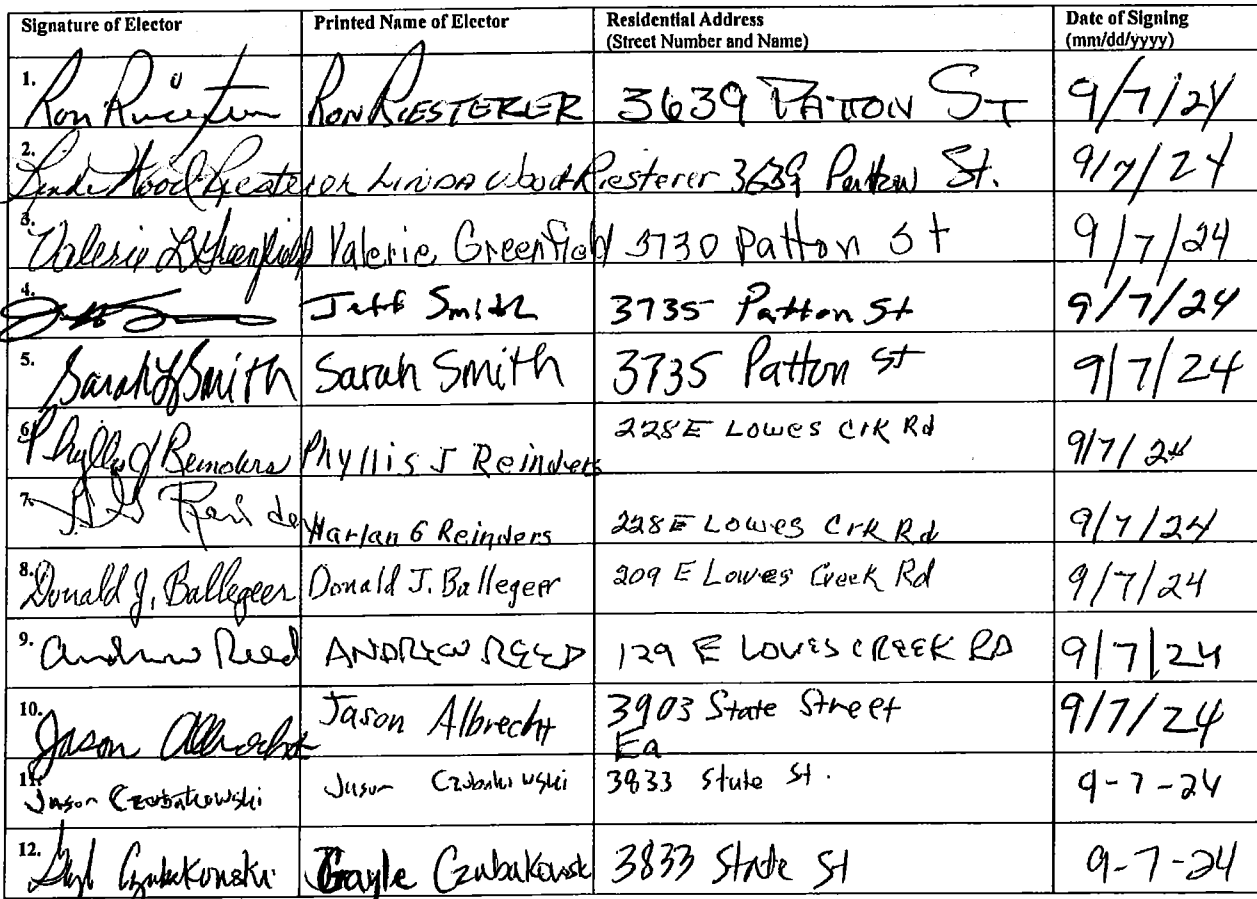 Signature of Elector Printed Name of Elector Residential Address Date of Signing
(Street Number and Name) (mm/dd/yyyy)
1. Ron RON RIESTERER 3639 PATTON ST 9/7/24
2. Linda Wood Riesterer LINDA Wood Riesterer 3639 Patton St. 9/7/24
3. Valerie L Greenfield Valerie Greenfield 3730 Patton St 9/7/24
4. Jeff Smith 3735 Patton St 9/7/24
5. Sarah L Smith Sarah Smith 3735 Patton St 9/7/24
6. Phyllis J Reinders Phyllis J Reinders 228 E Lowes Crk Rd 9/7/24
7. Harlan G Reinders 228 E Lowes Crk Rd 9/7/24
8. Donald J. Ballegeer Donald J. Ballegeer 209 E Lowes Creek Rd 9/7/24
9. Andrew Reed ANDREW REED 129 E LOWES CREEK RD 9/7/24
10. Jason Albrecht Jason Albrecht 3903 State Street 9/7/24
Ea
11. Jason Czubakowski Jason Czubakowski 3833 State St. 9-7-24
12. Gayle Czubakowski Gayle Czubakowsk 3833 State St 9-7-24